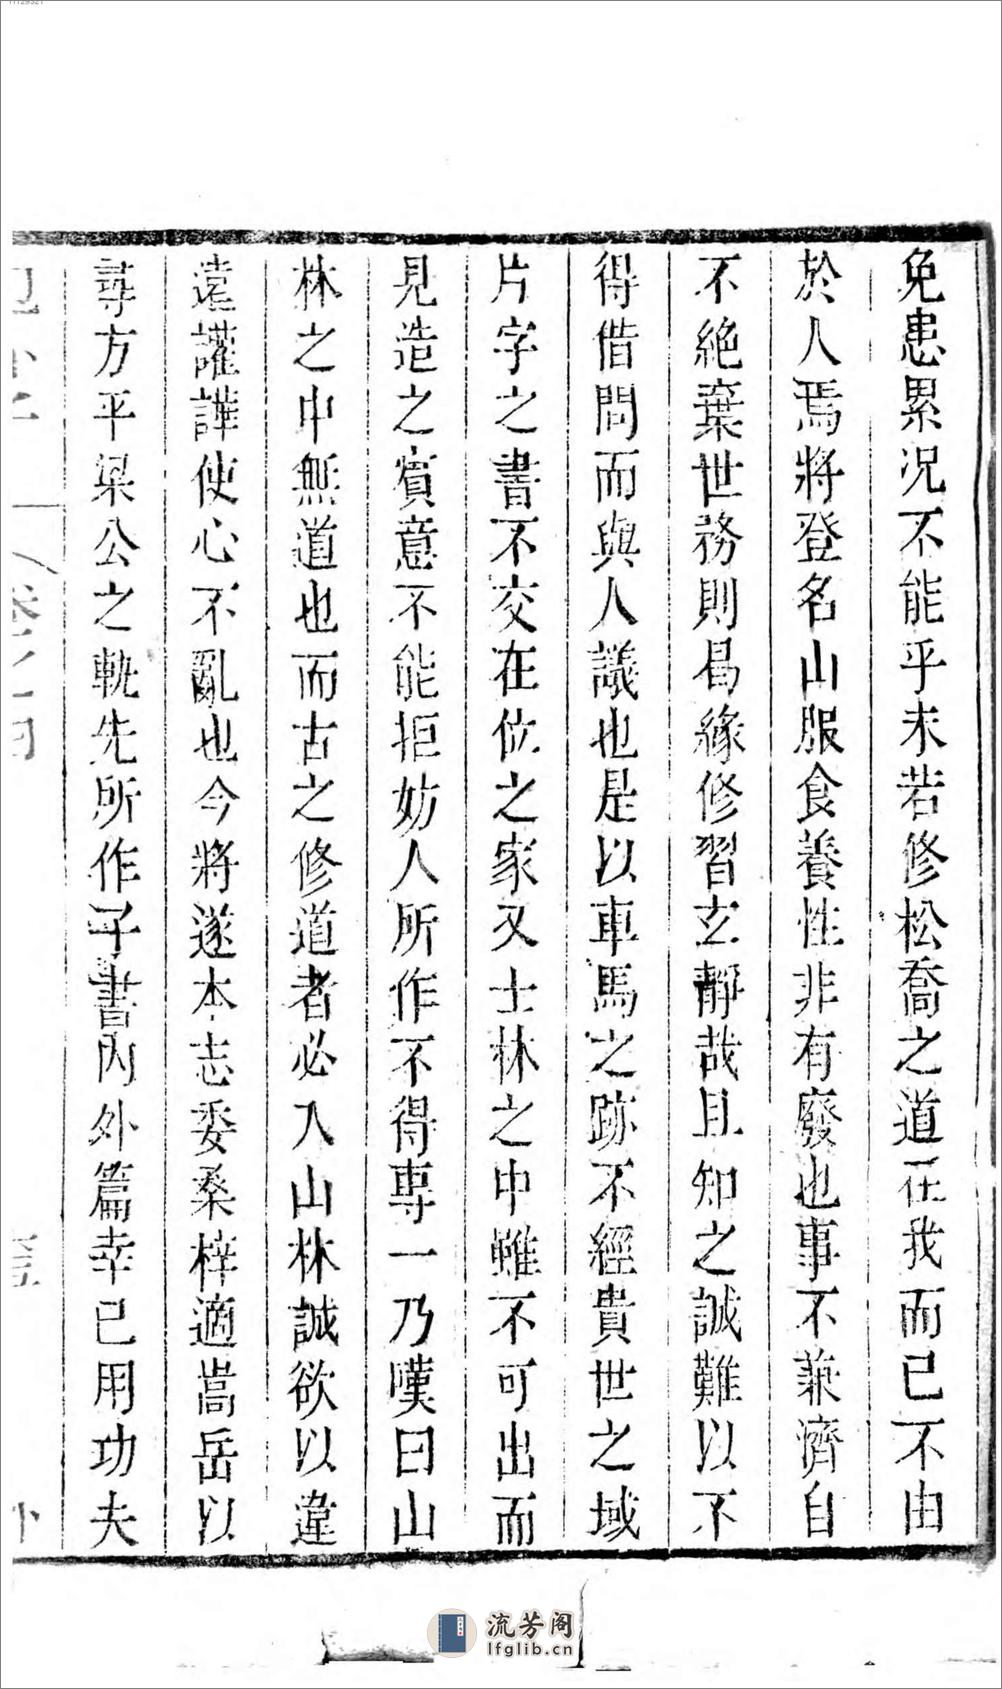 免患累况不能乎未若修松喬之道在我而已不由
於人焉將登名山服食養性非有廢也事不兼濟自
不絶棄世務則曷緣修習玄靜哉且知之誠難以不
得借問而與人議也是以車馬之跡不經貴世之域
片字之書不交在位之家又士林之中雖不可出而
見造之賓意不能拒妨人所作不得專一乃嘆曰山
林之中無道也而古之修道者必入山林誠欲以違
遠讙譁使心不亂也今將遂本志委桑梓適嵩岳以
尋方平梁公之軌先所作子書內外篇幸已用功夫
流芳阁
lfglib.cn